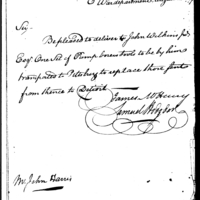 War department August
Sir,
Be pleased to deliver to John Wilkins Jr.
Esqr. One Set of Pump borer tools to be by him
transported to Pittsburg to replace those sent
from thence to Detroit
James McHenry
Samuel Hodgdon
Mr. John Harris